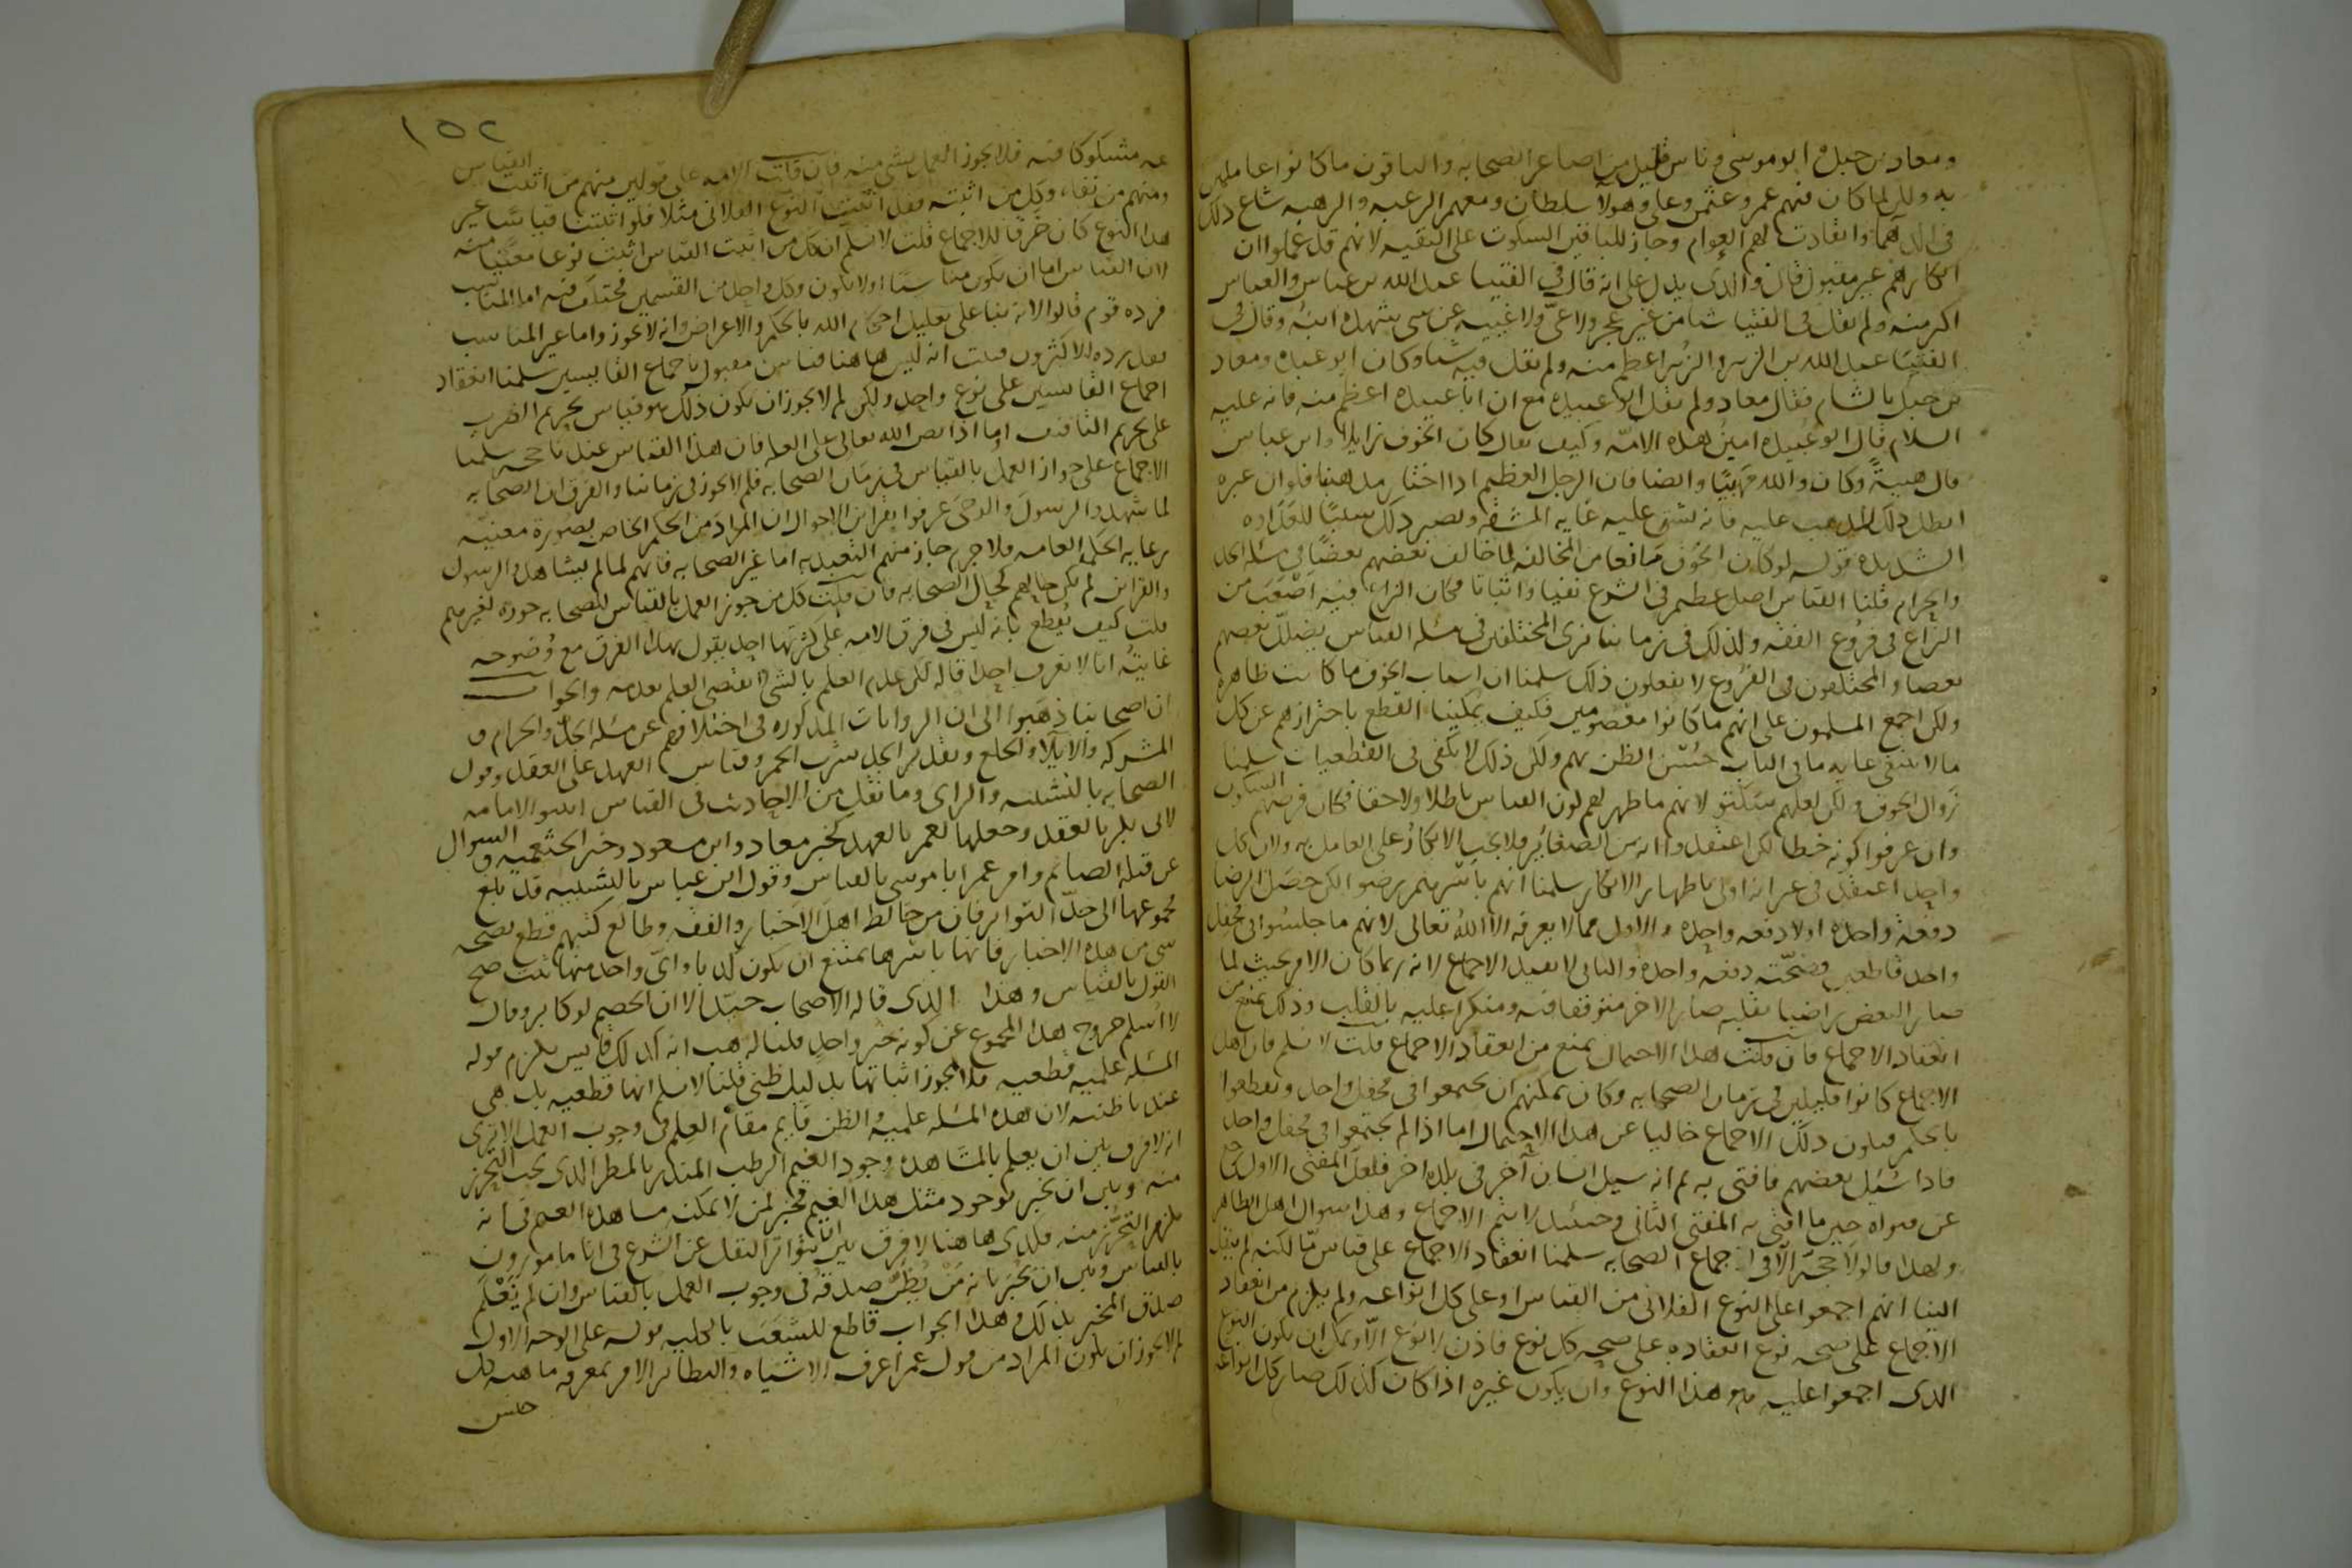 ومعاذ بن جبل وابو موسى وناس قليل من اصاغر الصحابة والباقون ماكانوا عاملين
به ولكن لما كان فيهم عمر وعثمن وعلى وهولا سلطان ومعهم الرغبه والرهبه شاع ذلك
فى الدهما وانقادت لهم العوام وجاز للباقين السكوت على التقيه لانهم قد علموا ان
انكارهم غير مقبول قال والذى يدل على انه قال فى الفتيا عبدالله بن عباس والعباس
اكبر منه ولم يقل فى الفتيا شيا من غير عجز ولا عىّ ولا غيبه عن شى شهده ابنه وقال فى
الفتيا عبد الله بن الزبير والزبير اعظم منه ولم يقل فيه شيا وكان ابو عبيده ومعاذ
بن جبل بالشام فقال معاذ ولم يقل ابو عبيده مع ان ابا عبيده اعظم منه فانه عليه
السلام قال ابو عبيده امين هذه الامّه وكيف يقال كان الخوف زايلا وابن عباس
قال هبيةً وكان والله مهيبًا وايضا فان الرجل العظيم اذا اختار مذهبا فلو ان غيره
ابطل ذلك المذهب عليه فانه يشق عليه غايه المشقه ويصير ذلك سببًا للعداوه
الشديده قوله لو كان الخوف مانعا من المخالفه لما خالف بعضهم بعضًا فى مسله الحد
والحرام قلنا القياس اصل عظيم فى الشرع نفيا واثباتا فكان النزاع فيه اصعب من
النزاع فى فروع الفقه ولذلك فى زماننا نرى المختلفين فى مسله القياس يضلّل بعضهم
بعضا والمختلفون فى الفروع لا يفعلون ذلك سلمنا ان اسباب الخوف ما كانت ظاهره
ولكن اجمع المسلمون على انهم ما كانوا معصومين فكيف يمكننا القطع باحترازهم عن كل
مالا ينبغى غايه ما فى الباب حُسْن الظن بهم ولكن ذلك لا يكفى فى القطعيات سلمنا
زوال الخوف ولكن لعلهم سكتوا لانهم ما ظهر لهم كون القياس باطلا ولا حقا فكان فرضهم السكوت
وان عرفوا كونه خطا لكن اعتقدوا انه من الصغاير فلا يجب الانكار على العامل به ولان كل
واحد اعتقد فى غيره انه اولى باظهار الانكار سلمنا انهم باسرهم رضوا لكن حصل الرضا
دفعة واحده او لا دفعه واحده والاول مما لا يعرفه الا الله تعالى لانهم ما جلسوا فى محفل
واحد قاطعين بصحّته دفعه واحده والثانى لا يفيد الاجماع لانه ربما كان الامر بحيث لما
صار البعض راضيا بقلبه صار الاخر متوقفا فيه ومنكرا عليه بالقلب وذلك يمنع من
انعقاد الاجماع فان قلت هذا الاحتمال يمنع من انعقاد الاجماع قلت لا نسلم فان اهل
الاجماع كانوا قليلين فى زمان الصحابه وكان يمكنهم ان يجتمعوا فى محفل واحد ويقطعوا
بالحكم فيكون ذلك الاجماع خاليا عن هذا الاحتمال اما اذا لم يجتمعوا فى محفل واحد
فاذا سُئِل بعضهم فافتى به ثم انه سيل انسان آخر فى بلده اخر فلعل المفتى الاول رجع
عن فتواه حين ما افتى به المفتى الثانى وحينئذ لا يتم الاجماع وهذا سوال اهل الظاهر
ولهذا قالوا لا حجه الا فى اجماع الصحابه سلمنا انعقاد الاجماع على قياس مّا لكنه لم ينقل
الينا انهم اجمعوا على النوع الفلانى من القياس او على كل انواعه ولم يلزم من انعقاد
الاجماع على صحه نوع انعقاده على صحه كل نوع فاذن لا نوع الا ويمكن ان يكون النوع
الذى اجمعوا عليه هو هذا النوع وان يكون غيره اذا كان كذلك صار كل انواعه
١٥٢
مشكوكا فيه فلا يجوز العمل بشى منه فان قلت الامه على قولين منهم من اثبت القياس
ومنهم من نفاه وكل من اثبته فقد اثبت النوع الفلانى مثلا فلو اثبتنا قياسًا غير
هذا النوع كان خرقا للاجماع قلت لا نسلم ان كل من اثبت القياس اثبت نوعا معيّنا منه
لان القياس اما ان يكون مناسبًا او لا يكون وكل واحد من القسمين مختلف فيه اما المناسب
فرده قوم قالوا لانه بنا على تعليل احكام الله بالحكم والاعراض وانه لا يجوز واما غير المناسب
فقد رده الاكثرون فثبت انه ليس هاهنا قياس مقبول باجماع القايسين سلمنا انعقاد
اجماع القايسين على نوع واحد ولكن لم لا يجوز ان يكون ذلك هو قياس تحريم الضرب
على تحريم التافيف اما اذا نص الله تعالى على العله فان هذا القياس عندنا حجه سلمنا
الاجماع على جواز العمل بالقياس فى زمان الصحابه فلم لا يجوز فى زماننا والفرق ان الصحابه
لما شهدوا الرسول والوحى عرفوا بقراين الاحوال ان المراد من الحكم الخاص بصورة معينه
رعايه الحكم العامه فلا جرم جاز منهم التعبد به اما غير الصحابه فانهم لما لم يشاهدوا الرسول
والقراين لم يكن حالهم كحال الصحابه فان قلت كل من جوز العمل بالقياس للصحابه جوزه لغيرهم
قلت كيف يُقطع بانه ليس فى فرق الامه على كثرتها احد يقول بهذا الفرق مع وُضوحه
غايتهُ انا لا نعرف احدا قاله لكن عدم العلم بالشى لا يقتضى العلم بعدمه والجواب
ان اصحابنا ذهبوا الى ان الروايات المذكوره فى اختلافهم عن مسله الجد والحرام و
المشركه والايلا والخلع وتقدير الجد شرب الخمر وقياس العهد على العقد وقول
الصحابه بالتشبيه والراى وما نقل من الاحاديث فى القياس اثبتوا الامامه
لابى بكر بالعقد وجعلها لعمر بالعهد كخبر معاذ وابن مسعود وخبر الخثعميه والسوال
عن قبله الصايم وامر عمر ابا موسى بالقياس وقول ابن عباس بالتشبيه قد بلغ
مجموعها الى حدّ التواتر فان من خالط اهل الاخبار والفقه وطالع كتبهم قطع بصحه
شى من هذه الاخبار فانها باسرها يمتنع ان يكون كذبا واىّ واحد منها ثبت صح
القول بالقياس وهذا الذى قاله الاصحاب جيّد الا ان الخصم لو كابر وقال
لا اسلم خروج هذا المجموع عن كونه خبر واحد قلنا له هب انه كذلك فليس يلزم قوله
المسله علميه قطعيه فلا يجوز اثباتها بدليل ظنى قلنا لا نسلم انها قطعيه بل هى
عندنا ظنيه لان هذه المسله علميه والظن قايم مقام العلم فى وجوب العمل الا ترى
انه لا فرق بين ان يعلم بالمشاهده وجود الغيم الرطب المنذر بالمطر الذى يجب التحرز
منه وبين ان يخبر بوجود مثل هذا الغيم مخبر لمن لا يمكنه مشاهده الغيم فى انه
يلزم التحرّز منه فكذى هاهنا لا فرق بين ان يتواتر النقل عن الشرع فى انا مامورون
بالقياس وبين ان يُخبرنا به مَنْ يُظنّ صدقه فى وجوب العمل بالقياس وان لم يَعْلم
صدق المخبر بذلك وهذا الجواب قاطع للشغب بالكليه قوله على الوجه الاول
لم لا يجوز ان يكون المراد من قول عمر اعرف الاشباه والنظاير الامر بمعرفه ماهيه كل
جنس